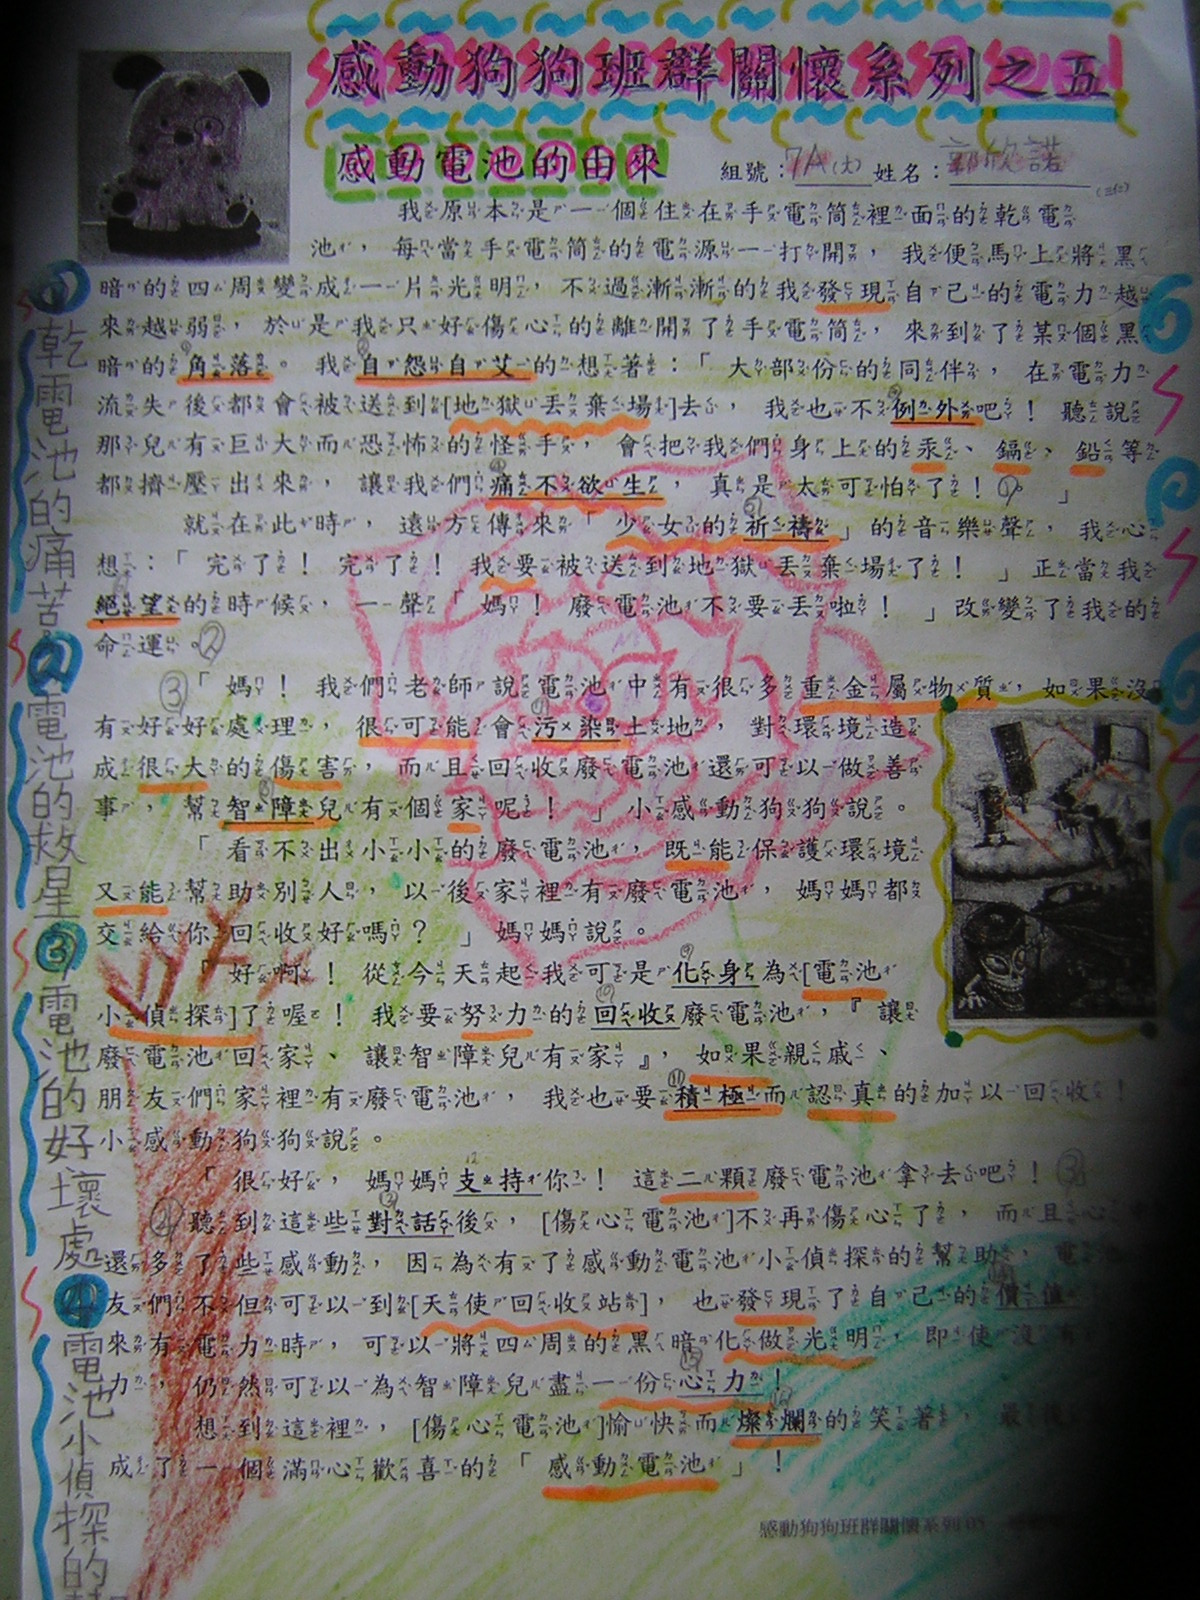 感動狗狗班群關懷系列之五
感動電池的由來
組號：7A(大) 姓名：郭欣諾
我原本是一個住在手電筒裡面的乾電
池，每當手電筒的電源一打開，我便馬上將黑
暗的四周變成一片光明，不過漸漸的我發現自己的電力越
來越弱，於是我只好傷心的離開了手電筒，來到了某個黑
暗的角落。我自怨自艾的想著：「大部份的同伴，在電力
流失後都會被送到[地獄丟棄場]去，我也不例外吧！聽說
那兒有巨大而恐怖的怪手，會把我們身上的汞、鎘、鉛等
都擠壓出來，讓我們痛不欲生，真是太可怕了！」
就在此時，遠方傳來「少女的祈禱」的音樂聲，我心
想：「完了！完了！我要被送到地獄丟棄場了！」正當我
絕望的時候，一聲「媽！廢電池不要丟啦！」改變了我的
命運。②
③「媽！我們老師說電池中有很多重金屬物質，如果沒
有好好處理，很可能會污染土地，對環境造
成很大的傷害，而且回收廢電池還可以做善
事，幫智障兒有個家呢！」小感動狗狗說。
「看不出小小的廢電池，既能保護環境
又能幫助別人，以後家裡有廢電池，媽媽都
交給你回收好嗎？」媽媽說。
「好啊！從今天起我可是化身為[電池
小偵探]了喔！我要努力的回收廢電池，『讓
廢電池回家、讓智障兒有家』，如果親戚、
朋友們家裡有廢電池，我也要積極而認真的加以回收！
小感動狗狗說。
「很好，媽媽支持你！這二顆廢電池拿去吧！③
④聽到這些對話後，[傷心電池]不再傷心了，而且心
還多了些感動，因為有了感動電池小偵探的幫助，電
友們不但可以到[天使回收站]，也發現了自己的價值
來有電力時，可以將四周的黑暗化做光明，即使沒有
力，仍然可以為智障兒盡一份心力！
想到這裡，[傷心電池]愉快而燦爛的笑著，最
成了一個滿心歡喜的「感動電池」！
感動狗狗班群關懷系列05
①乾電池的痛苦
②電池的救星
③電池的好壞處
④電池小偵探的